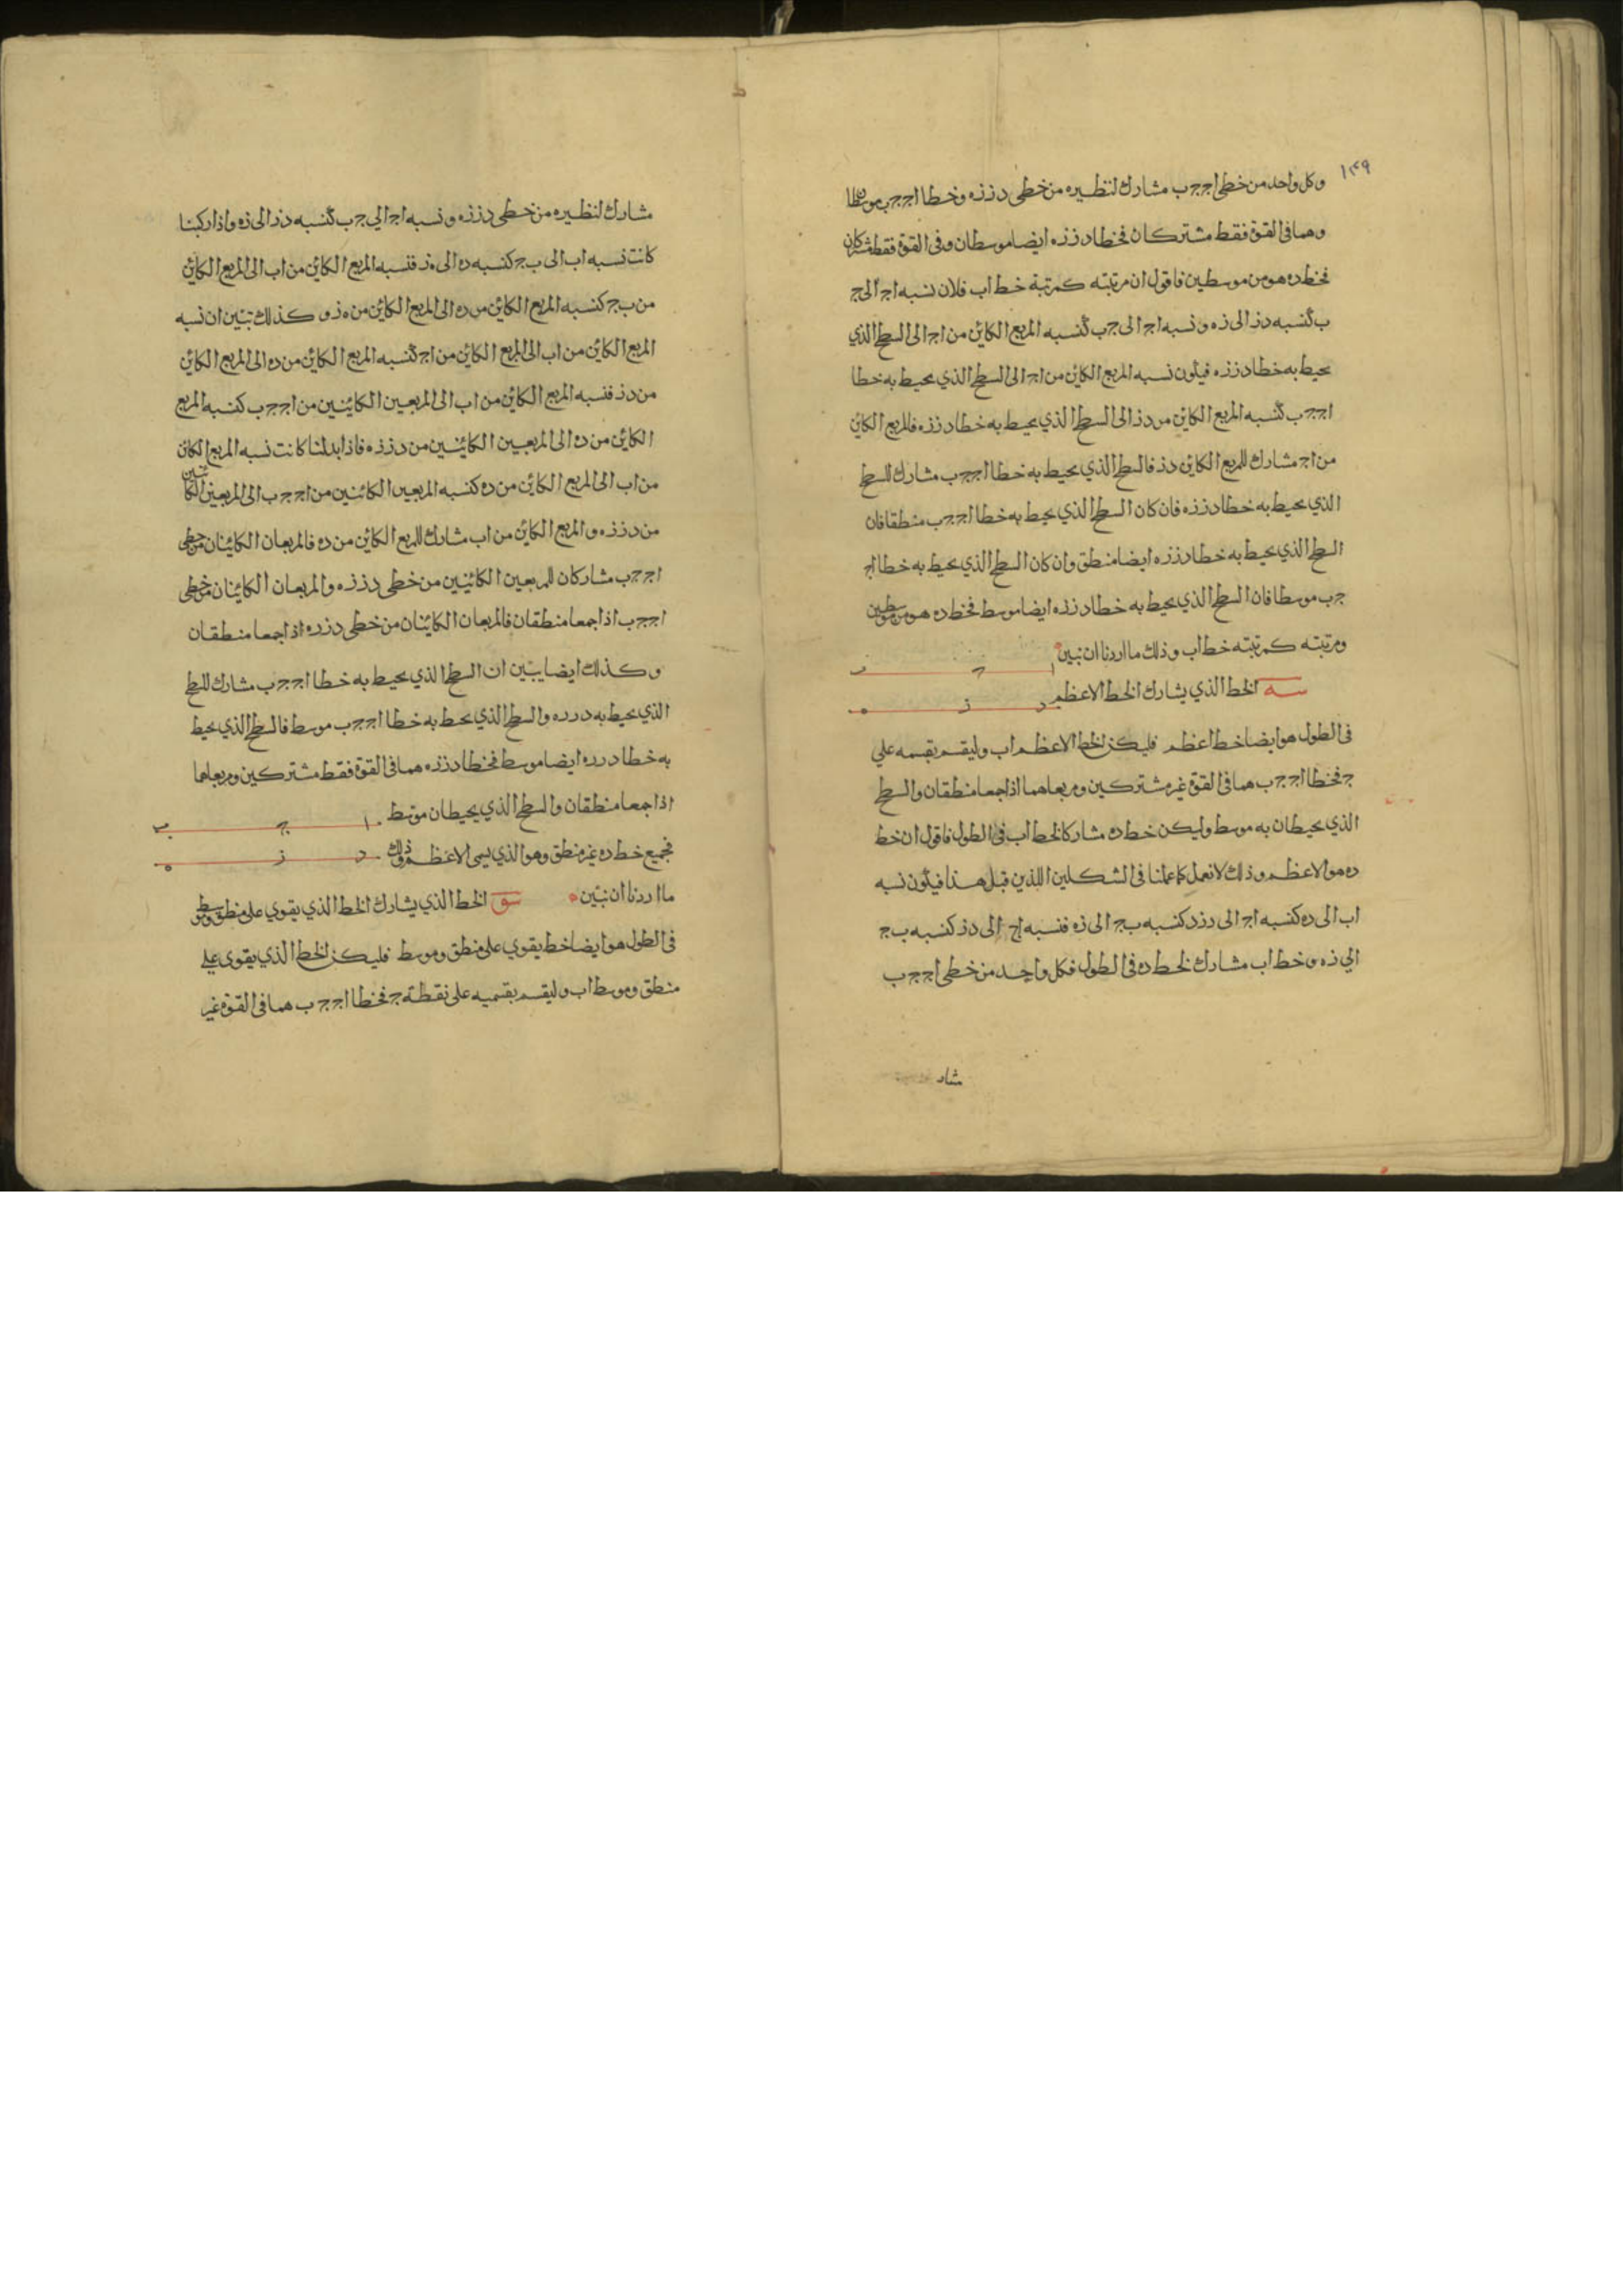 ١٣٩
وكل واحد من خطى اج جب مشارك لنظيره من خطى دز زه وخطا اج جب موسطا
وهما فى القوة فقط مشتركان فخطا دز زه ايضا موسطان وفى القوة فقط مشتركان
فخط ده هو من موسطين فاقول ان مرتبته كمرتبة خط اب فلان نسبه اج الى ج
ب كنسبه دز الى زه ونسبه اج الى جب كنسبه المربع الكائن من اج الى السطح الذي
يحيط به خطا دز زه فيكون نسبه المربع الكائن من اج الى السطح الذي يحيط به خطا
اج جب كنسبه المربع الكائن من دز الى السطح الذي يحيط به خطا دز زه فالمربع الكائن
من اج مشارك للمربع الكائن دز فالسطح الذي يحيط به خطا اج جب مشارك للسطح
الذي يحيط به خطا دز زه فان كان السطح الذي يحيط به خطا اج جب منطقا فان
السطح الذي يحيط به خطا دز زه ايضا منطق وان كان السطح الذي يحيط به خطا اج
جب موسطا فان السطح الذي يحيط به خطا دز زه ايضا موسط فخط ده هو من موسطين
ومرتبته كمرتبته خط اب وذلك ما اردنا ان نبين
ا ج ب
سه الخط الذي يشارك الخط الاعظم
د ز ه
فى الطول هو ايضا خط اعظم فليكن الخط الاعظم اب وليقسم بقسمه علي
ج فخطا اج جب هما فى القوة غير مشتركين ومربعاهما اذا جمعا منطقان والسطح
الذي يحيطان به موسط وليكن خط ده مشاركا لخط اب فى الطول فاقول ان خط
ده هو الاعظم وذلك لانعمل كما عملنا فى الشكلين اللذين قبل هذا فيكون نسبه
اب الى ده كنسبه اج الى دزد كنسبه بج الى زه فنسبه اج الى دز كنسبه بج
الي زه وخط اب مشارك لخط ده فى الطول فكل واحد من خطى اج جب
مشار
مشارك لنظيره من خطى دز زه ونسبه اج الي جب كنسبه دز الى زه واذا ركبنا
كانت نسبه اب الى بج كنسبه ده الى ه ز فنسبه المربع الكائن من اب الى المربع الكائن
من بج كنسبه المربع الكائن من ده الى المربع الكائن من ه ز وكذلك تبين ان نسبه
المربع الكائن من اب الى المربع الكائن من اج كنسبه المربع الكائن من ده الى المربع الكائن
من دز فنسبه المربع الكائن من اب الى المربعين الكائنين من اج جب كنسبه المربع
الكائن من ده الى المربعين الكائنين من دز زه فاذا ابدلنا كانت نسبه المربع الكائن
من اب الى المربع الكائن من ده كنسبه المربعين الكائنين من اج جب الى المربعين الكائنين
من دز زه والمربع الكائن من اب مشارك للمربع الكائن من ده فالمربعان الكائنان من خطى
اج جب مشاركان للمربعين الكائنين من خطى دز زه والمربعان الكائنان من خطى
اج جب اذا جمعا منطقان فالمربعان الكائنان من خطى دز ره اذا جمعا منطقان
وكذلك ايضا يبين ان السطح الذي يحيط به خطا اج جب مشارك للسطح
الذي يحيط به در ره والسطح الذي يحيط به خطا اج جب موسط فالسطح الذي يحيط
به خطا در ره ايضا موسط فخطا دز زه هما فى القوة فقط مشتركين ومربعاهما
اذا جمعا منطقان والسطح الذي يحيطان موسط
ا ج ب
فجميع خط ده غير منطق وهو الذي يسمى الاعظم وذلك
د ز ه
ما اردنا ان نبين سو الخط الذي يشارك الخط الذي يقوي على منطق وموسط
فى الطول هو ايضا خط يقوي على منطق وموسط فليكن الخط الذي يقوى علي
منطق وموسط اب وليقسم بقسميه على نقطة ج فخطا اج جب هما فى القوة غير